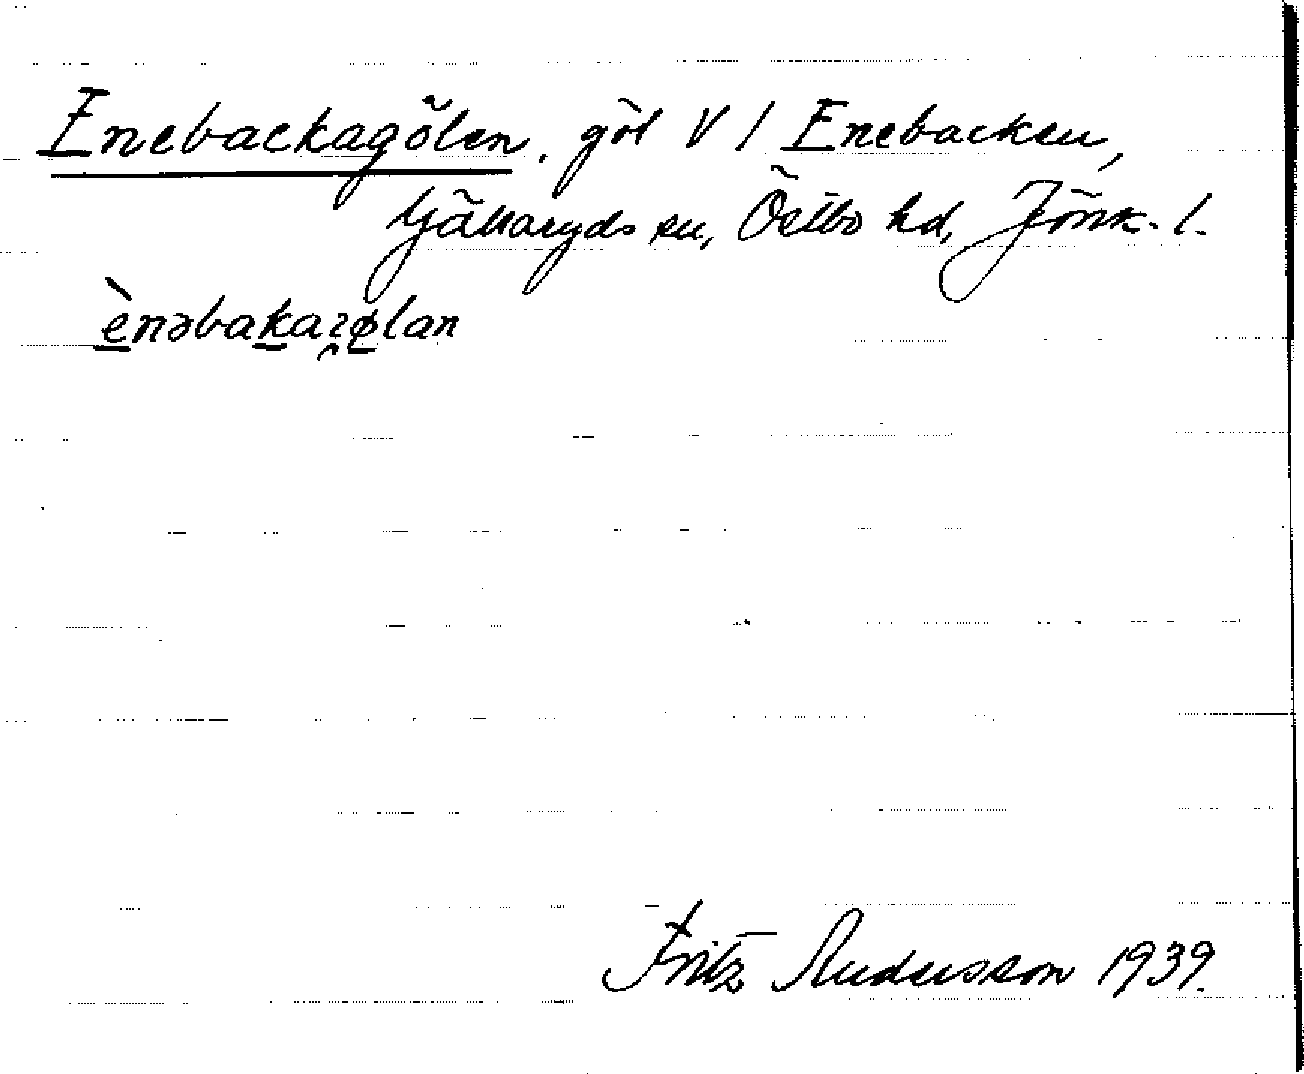 Enebackagölen, göl V / Enebacken,
Gällaryds sn, Östbo hd, Jönk. l.
ènəbakaꝛølan
Fritz Andersson 1939.